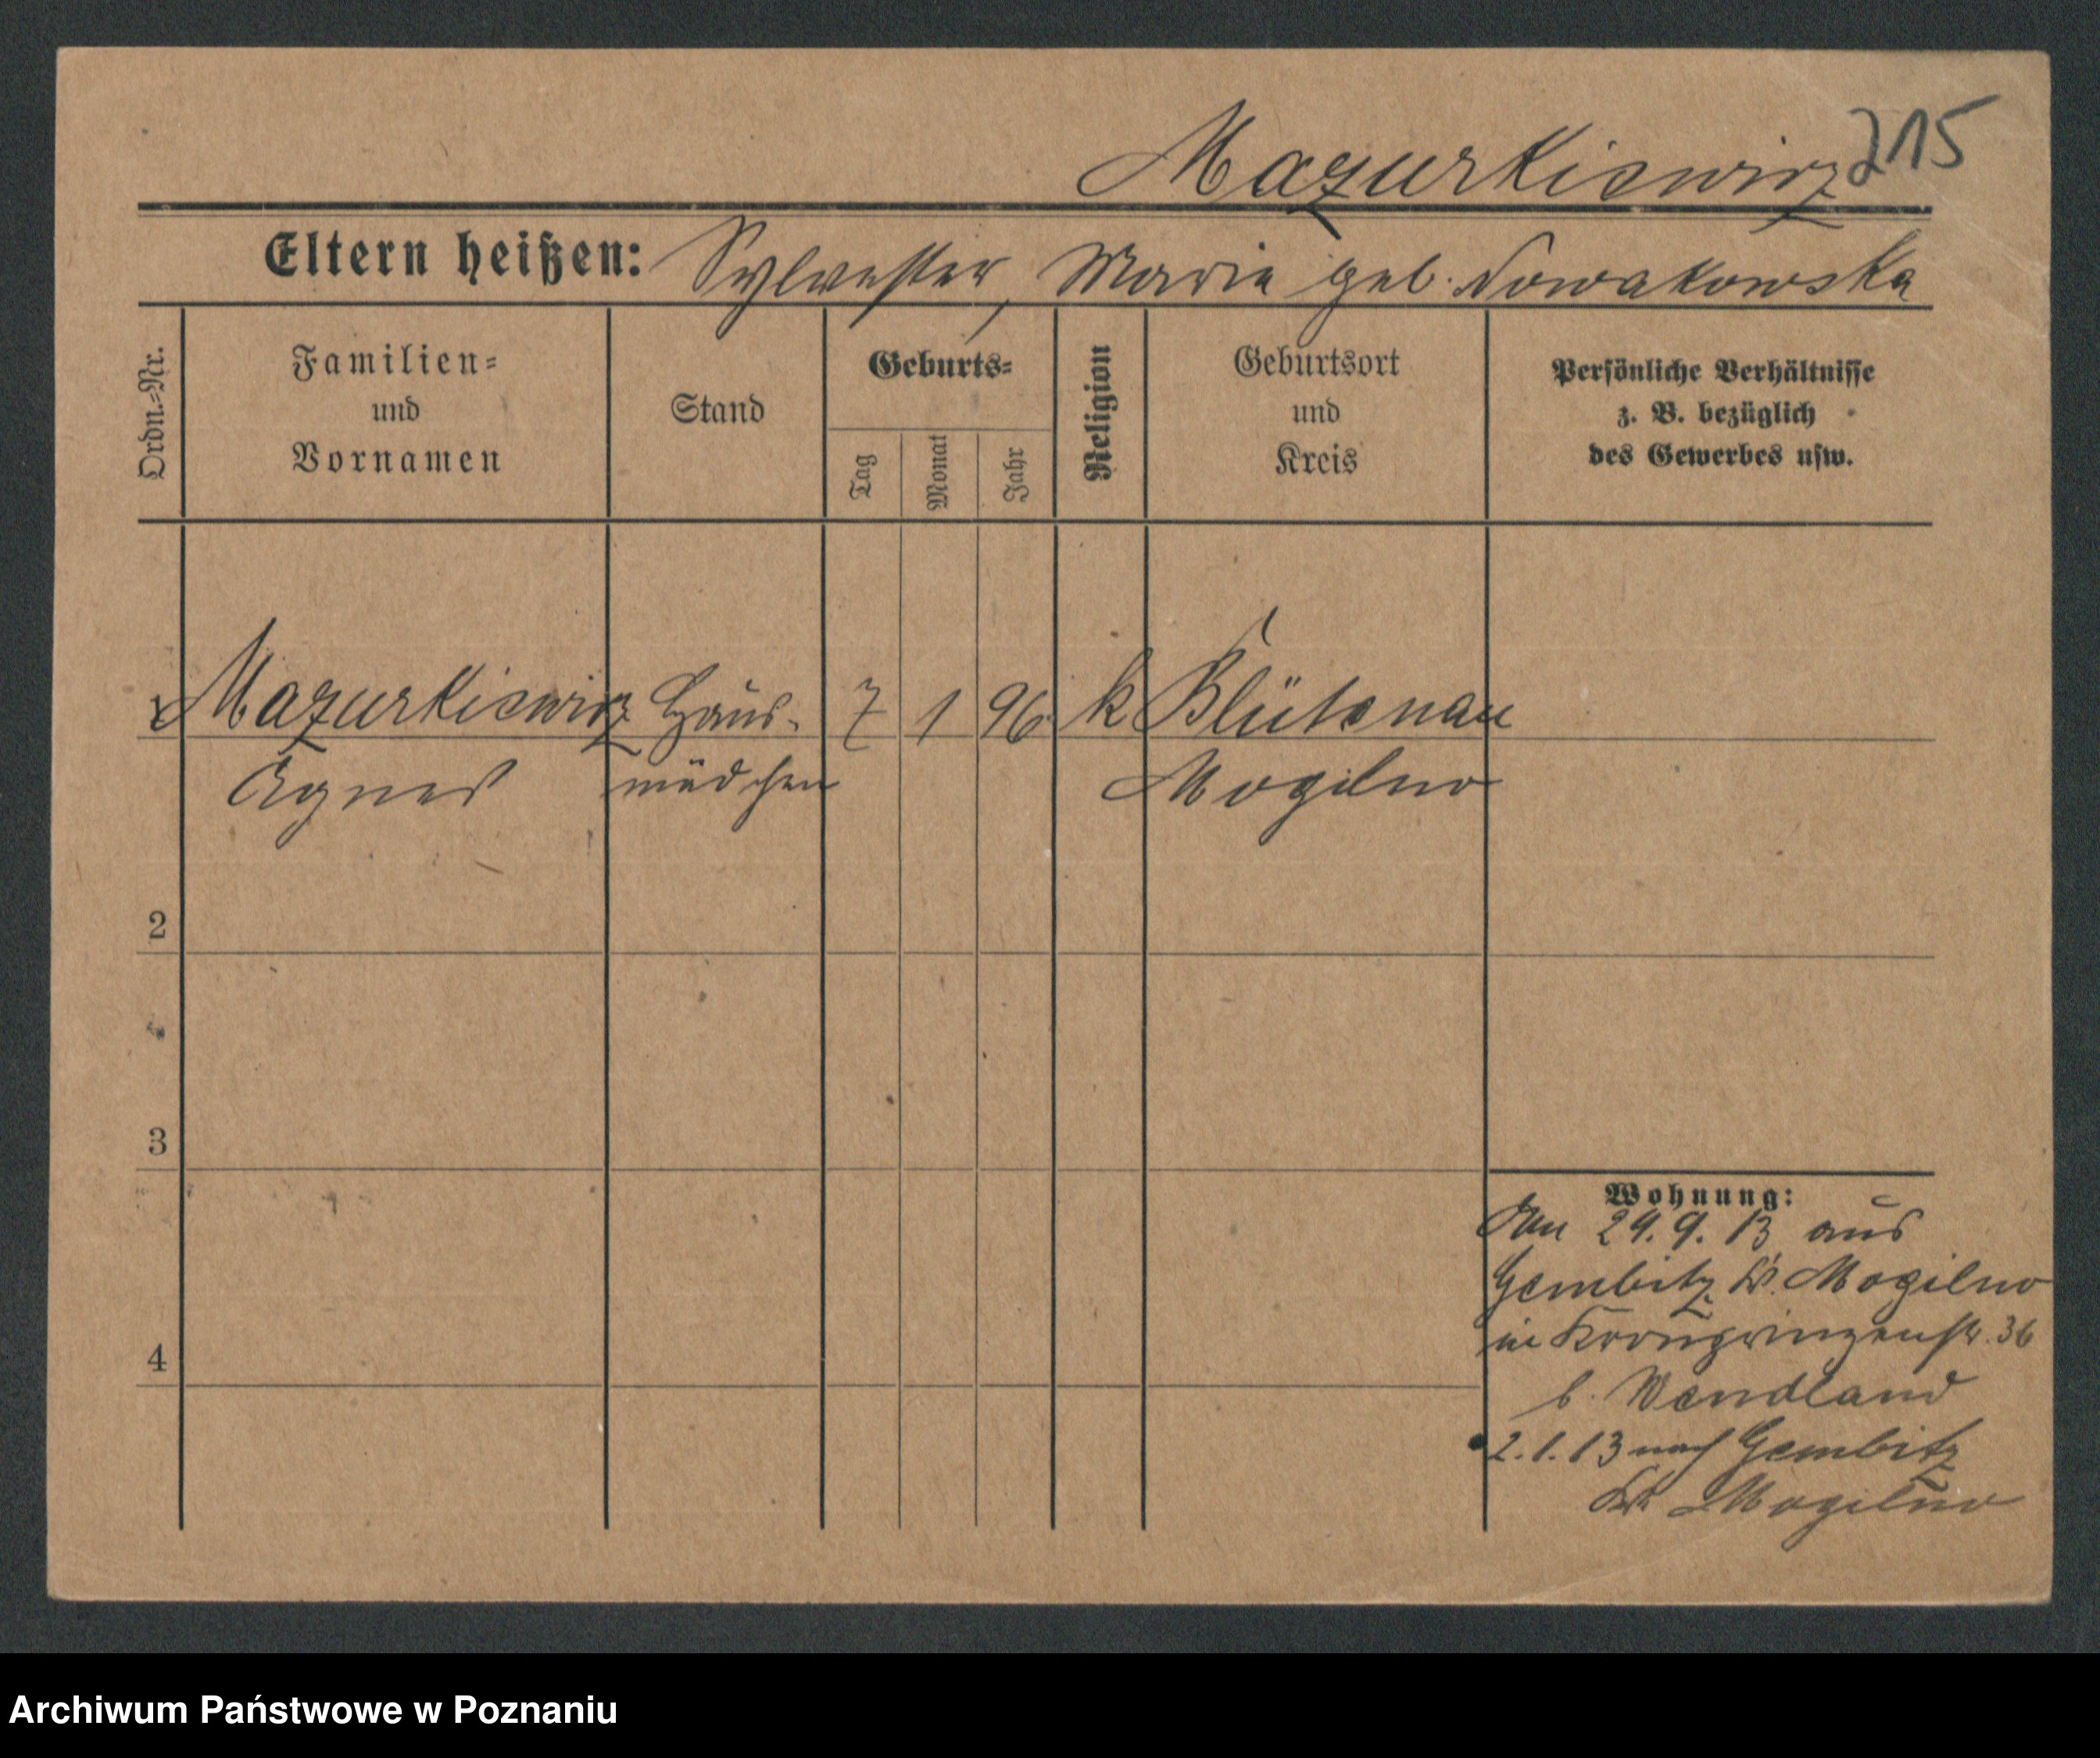 Mazurkiewicz 215
Eltern heißen: Sylvester, Marie geb. Nowakowska
Ordn.-Nr.
Familien-
und
Vornamen
Stand
Geburts-
Tag
Monat
Jahr
Religion
Geburtsort
und
Kreis
Persönliche Verhältnisse
z. B. bezüglich
des Gewerbes usw.
1 Mazurkiewicz Haus- 7 1 96 k Blütenau
Agnes mädchen Mogilno
2
3
4
Wohnung:
29. 9. 13 aus
Gembitz Kr. Mogilno
in Kronprinzenstr. 36
b. Wendland
2. 1. 13 nach Gembitz
Kr. Mogilno
Archiwum Państwowe w Poznaniu